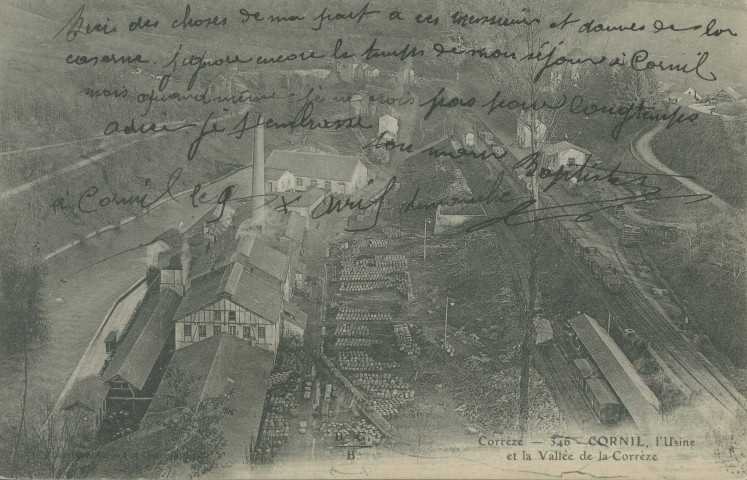 Bien des choses de ma part a ces messieurs et dames de la
caserne. j'ignore encore le temps de mon séjour à Cornil
mais quand même je ne crois pas pour longtemps
adieu je t'embrasse
ton mari Baptiste
à Cornil le 9 avril dimanche
Corrèze — 346 - CORNIL, l'Usine
et la Vallée de la Corrèze
B.